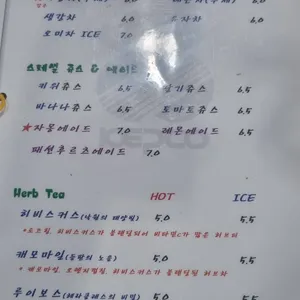 생강차 6.0 유자차 6.0
오미자 ICE 7.0
스페셜 쥬스 & 에이드
키위쥬스 6.5 딸기쥬스 6.5
바나나쥬스 6.5 토마토쥬스 6.5
★자몽에이드 7.0 레몬에이드 6.5
패션후르츠에이드 7.0
Herb Tea HOT ICE
히비스커스 5.0 5.5
캐모마일(동양의 노을) 5.0 5.5
루이보스 5.0 5.5